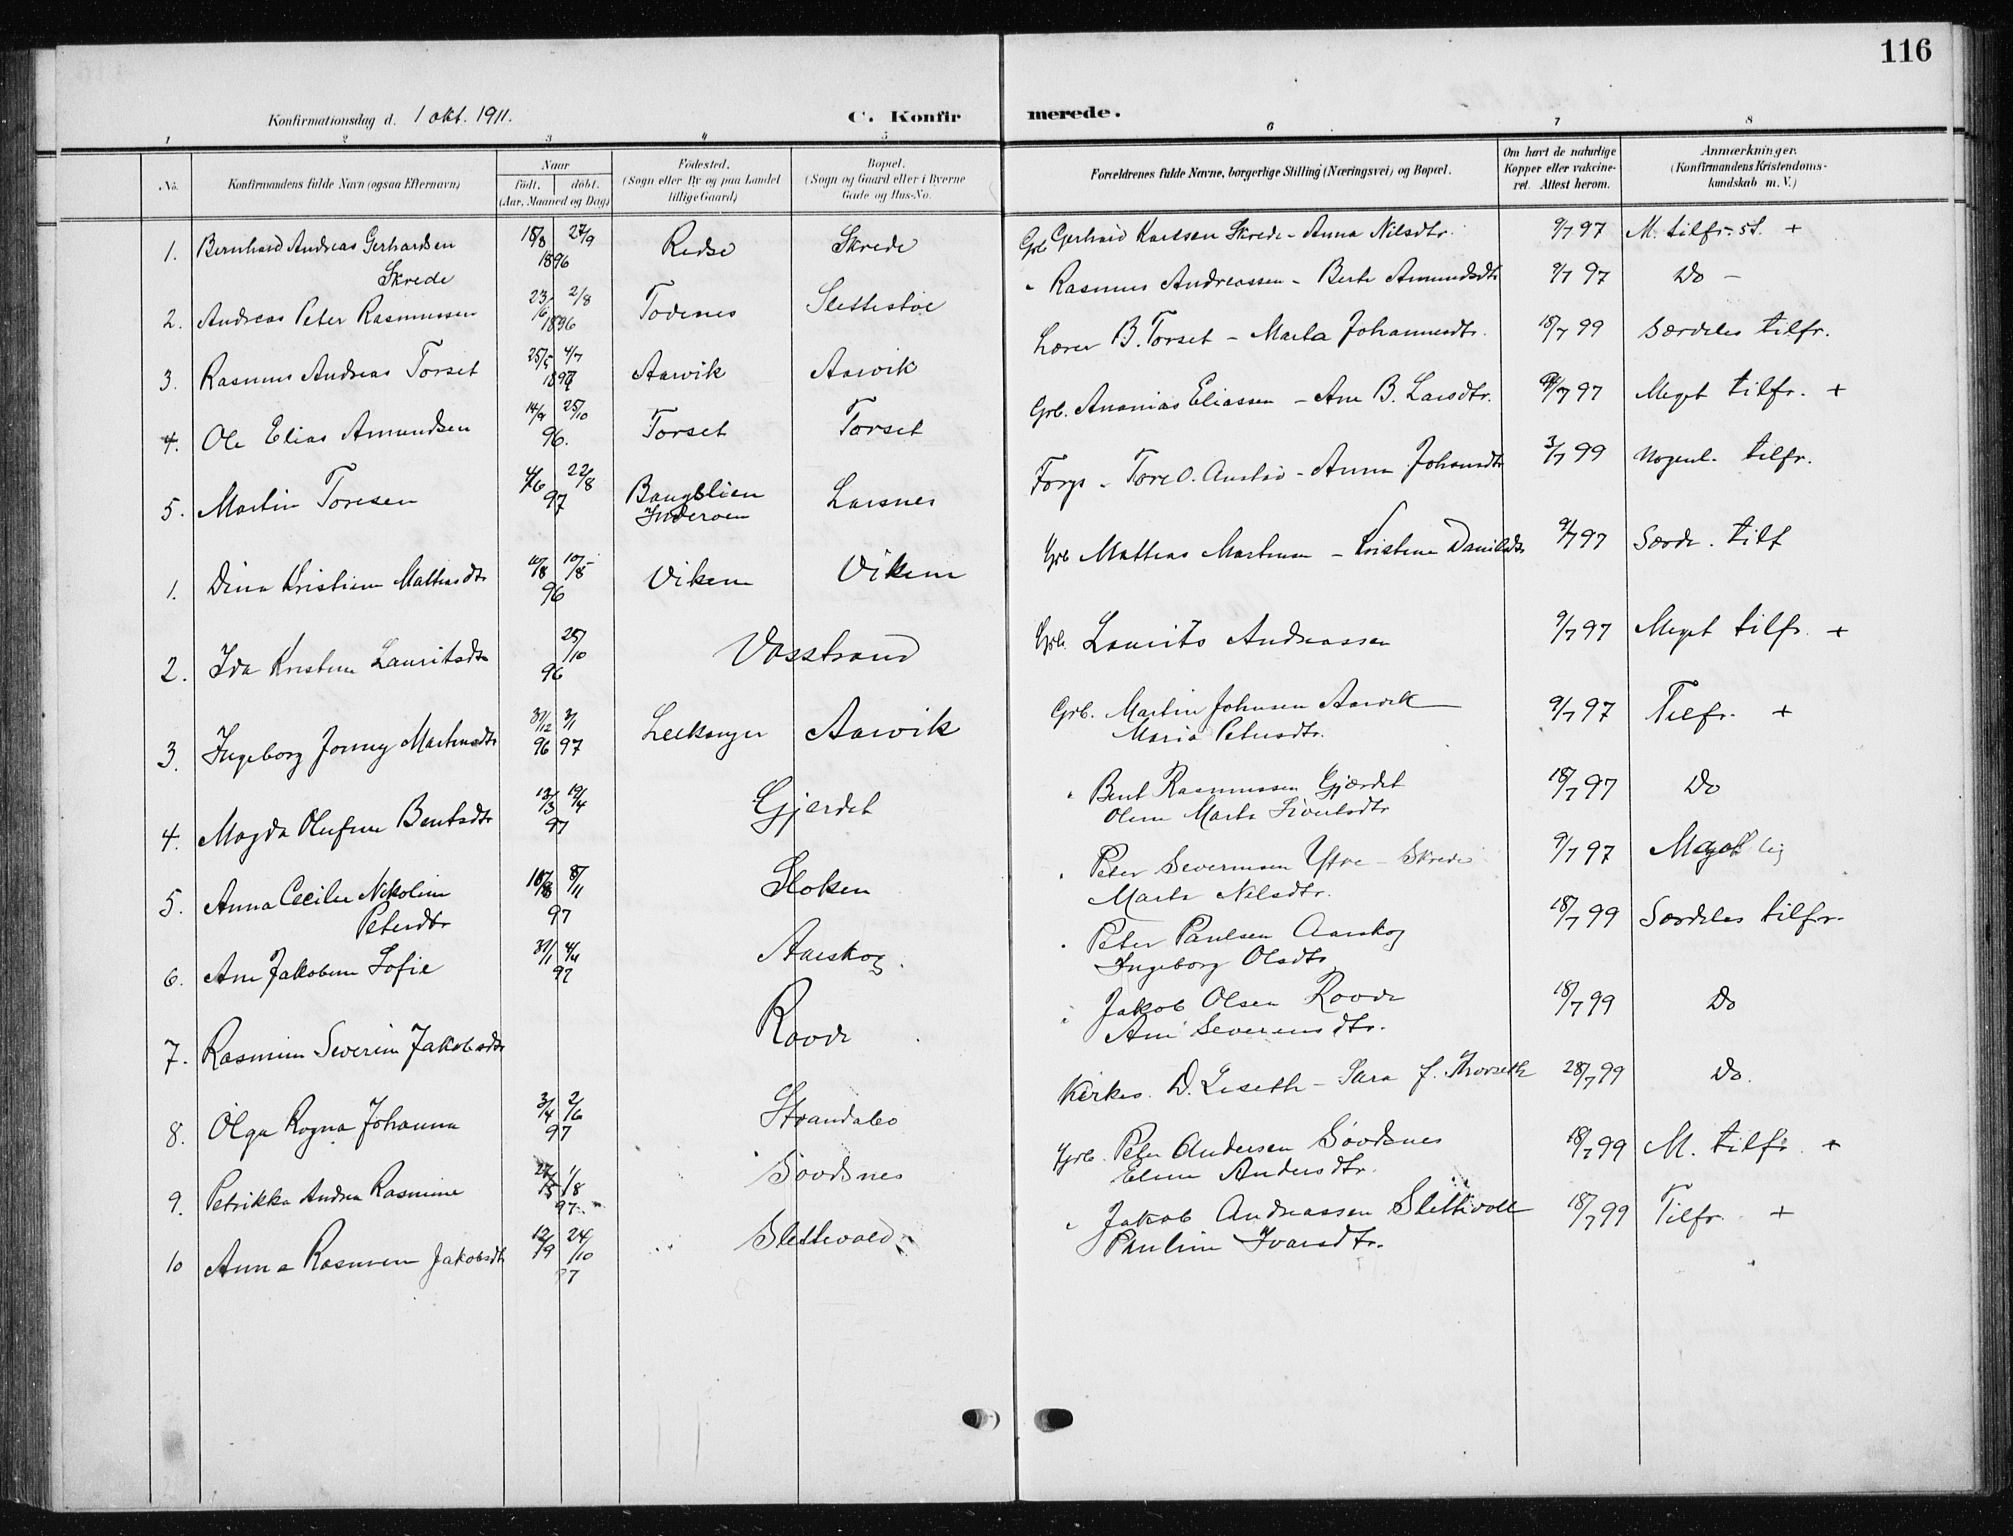 116
Konfirmationsdag d. 1 okt. 1911.
C. Konfirmerede.
1 2 3 4 5 6 7 8
No.
Konfirmandens fulde Navn (ogsaa Efternavn)
Naar
født. døbt.
(Aar, Maaned og Dag)
Fødested.
(Sogn eller By og paa Landet
tillige Gaard)
Bopæl.
(Sogn og Gaard eller i Byerne
Gade og Hus-No.
Forældrenes fulde Navne, borgerlige Stilling (Næringsvei) og Bopæl.
Om havt de naturlige
Kopper eller vakcine-
ret. Attest herom.
Anmærkninger.
(Konfirmandens Kristendoms-
kundskab m. V.)
1. Bernhard Andreas Gerhardsen 18/8 27/9 Skrede Grb Gerhard Karlsen Skrede - Anna Nilsdtr. 9/7 97 M. tilfr. st. +
Skrede 1896
2. Andreas Peter Rasmussen 2/8 1896 Slettestøl " Rasmus Andreassen - Berte Amundsdtr 9/7 97 Do -
3. Rasmus Andreas Torset 25/5 4/7 Aarvik Aarvik Lærer B. Torset - Marta Johannesdtr. 18/7 99 Særdeles tilfr.
4. Ole Elias Amundsen 25/10 96. Torset Torset Grb. Ananias Eliassen - Ane B. Larsdtr. 97 Meget tilfr. +
5. Martin Toresen 22/8 97 Larsnes Tore O. - Anna Johansdtr 3/7 99 Nogenl. tilfr.
1. Dina Kristine Matiasdtr 96 Viken Viken Grb Mattias Martinsen - Kristine Danielsdtr 9/7 97 Særd. tilf
2. Ida Kristine Lauritsdtr 25/10 96 Vasstrand Grb. Laurits Andreassen 9/7 97 Meget tilfr. +
3. Ingeborg Jonny Martinsdtr 31/12 96 3/1 97 Leikanger Aarvik Grb. Martin Johnsen Aarvik 9/7 97 Tilfr. +
Maria Petersdtr.
4. Magda Olufine Bentsdtr 13/3 19/4 97 Gjerdet " Bent Rasmussen Gjærdet 18/7 97 Do
Oline Marta Sivertsdtr
5. Anna Cecilie Nikoline 8/11 97 Stoken " Peter Severinsen Ytre-Skrede 9/7 97 Meget
Petersdtr Marta Nilsdtr.
6. Ane Jakobine Sofie 31/1 4/4 97 Aarskog. " Peter Paulsen Aarskog 18/7 99 Særdeles tilfr.
Ingeborg Olsdtr
7. Rasmine Severine Jakobsdtr Rovde " Jakob Olsen Rovde 18/7 99 Do
Ane Severinsdtr.
8. Olga Ragna Johanna 3/4 2/6 97 Strandabø Kirkes. D. Leseth - Sara J. Thorseth 28/7 99 Do.
9. Petrikka Andrea Rasmine 1/8 97 Sovdsnes Grb. Peter Andersen Sovdsnes 18/7 99 M. tilfr. +
Eline Andersdtr.
10 Anna Rasmine Jakobsdtr 12/9 24/10 97 Slettevold " Jakob Andreassen Slettivoll 18/7 99 Tilfr. +
Pauline Ivarsdtr.